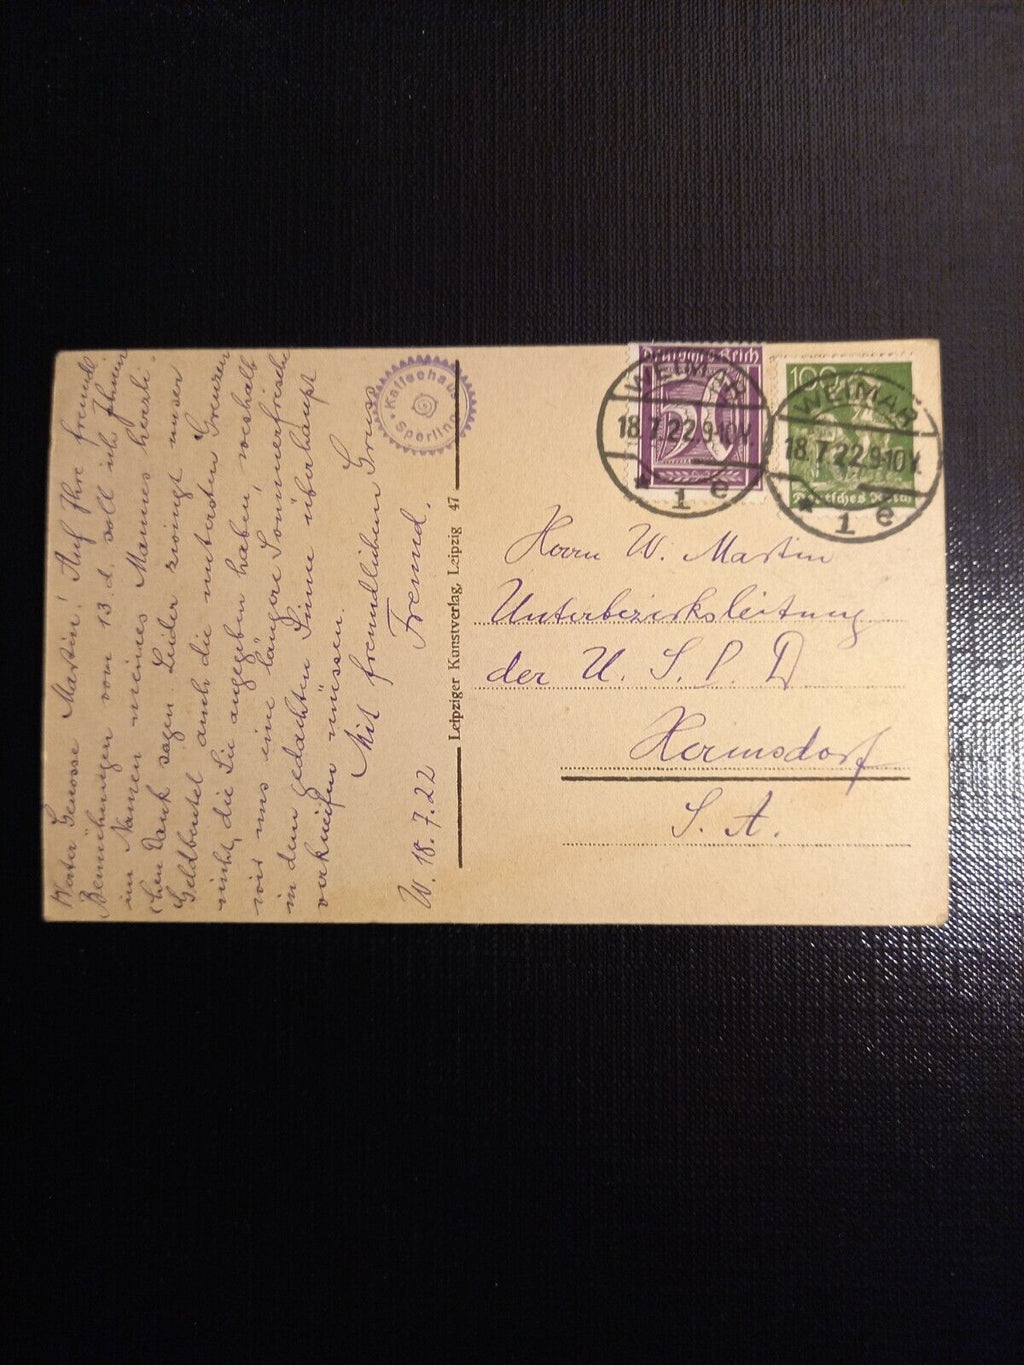 Werter Genosse Martin! Auf Ihre freundl.
Bemühungen vom 13. d. soll ich Ihnen
im Namen meines Mannes herzli-
chen Dank sagen. Leider zwingt unser
Geldbeutel auch die untersten Grenzen
nicht, die Sie angegeben haben, weshalb
wir uns eine längere Sommerfrische
in dem gedachten Sinne überhaupt
verkneifen müssen.
Mit freundlichem Gruss
Freund.
W. 18.7.22
Kaffeehaus
Sperling
Leipziger Kunstverlag, Leipzig 47
Deutsches Reich
WEIMAR
18.7.22.9-10V.
* 1 e
100
WEIMAR
18.7.22.9-10V.
* 1 e
Deutsches Reich
Herrn W. Martin
Unterbezirksleitung
der U. S. P. D
Hermsdorf
S. A.